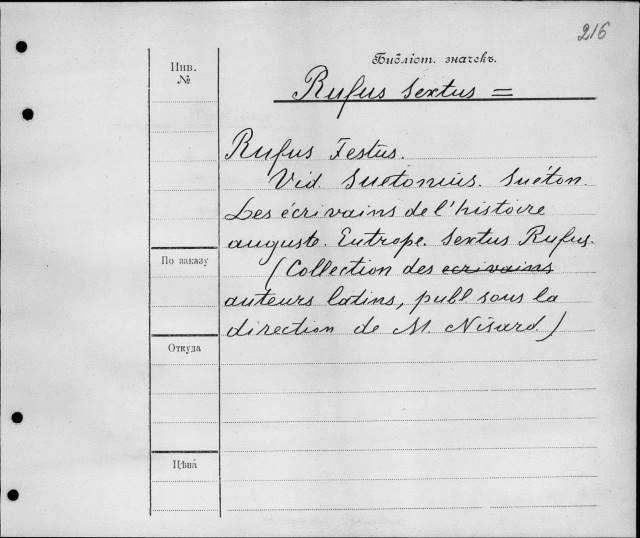 216
Библіот. значекъ.
Инв.
№
Rufus Sextus =
Rufus Festus.
Vid. Suetonius. Suéton.
Les écrivains de l'histoire
auguste. Eutrope. Sextus Rufus.
(Collection des ecrivains
auteurs latins, publ sous la
direction de M. Nisard)
По заказу
Откуда
Цѣна